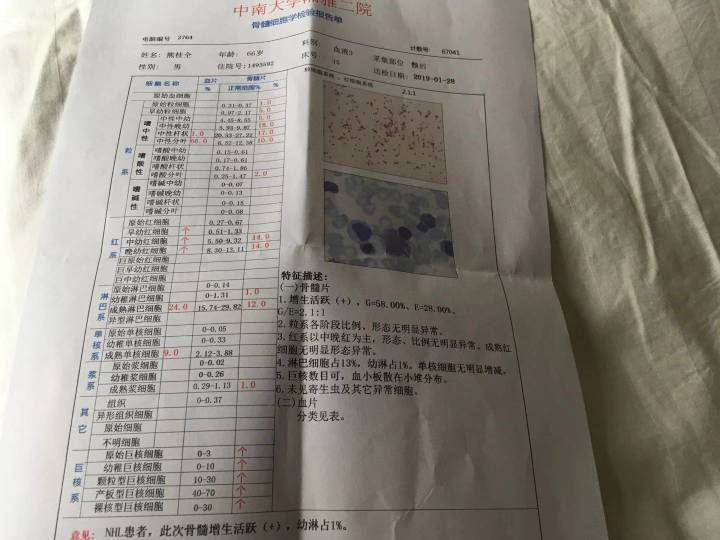 中南大学湘雅二院
骨髓细胞学检验报告单
电脑编号 2764
科别: 血液3
计数号: 67041
姓名: 熊桂全 年龄: 66岁
床号: 15
采集部位 髂后
性别: 男 住院号:1493592
送检日期: 2019-01-28
细胞名称 血片 骨髓片
% 正常范围% %
粒系
原始血细胞
原始粒细胞 0.31-0.37 1.0
早幼粒细胞 0.97-2.17 5.0
嗜中性
中性中幼 4.45-8.55 5.0
中性晚幼 5.93-9.87
中性杆状 1.0 20.53-27.22 17.0
中性分叶 66.0 6.52-12.36 10.0
嗜酸性
嗜酸中幼 0.15-0.61
嗜酸晚幼 0.17-0.61
嗜酸杆状 0.74-1.86
嗜酸分叶 0.25-1.47 2.0
嗜碱性
嗜碱中幼 0-0.07
嗜碱晚幼 0-0.13
嗜碱杆状 0-0.15
嗜碱分叶 0-0.08
红系
原始红细胞 0.27-0.67
早幼红细胞 个 0.51-1.33
中幼红细胞 个 5.50-9.32 14.0
晚幼红细胞 个 8.30-13.11 14.0
巨原始红细胞
巨早幼红细胞
巨中幼红细胞
淋巴系
原始淋巴细胞 0-0.14
幼稚淋巴细胞 0-1.31 1.0
成熟淋巴细胞 24.0 15.74-29.82 12.0
异型淋巴细胞
单核系
原始单核细胞 0-0.05
幼稚单核细胞 0-0.33
成熟单核细胞 9.0 2.12-3.88
浆系
原始浆细胞 0-0.02
幼稚浆细胞 0-0.26
成熟浆细胞 0.29-1.13 1.0
其它
组织 0-0.37
异形组织细胞
原始细胞
不明细胞
巨核系
原始巨核细胞 0-3 个
幼稚巨核细胞 0-10 个
颗粒型巨核细胞 10-30 个
产板型巨核细胞 40-70 个
裸核型巨核细胞 0-30 个
粒细胞系统 : 红细胞系统
2.1:1
特征描述:
(一)骨髓片
1.增生活跃(+), G=58.00%, E=28.00%,
G/E=2.1:1
2.粒系各阶段比例、形态无明显异常。
3.红系以中晚红为主, 形态、比例无明显异常, 成熟红
细胞无明显形态异常。
4.淋巴细胞占13%, 幼淋占1%。单核细胞无明显增减。
5.巨核数目可, 血小板散在小堆分布。
6.未见寄生虫及其它异常细胞。
(二)血片
分类见表。
意见: NHL患者, 此次骨髓增生活跃(+), 幼淋占1%。